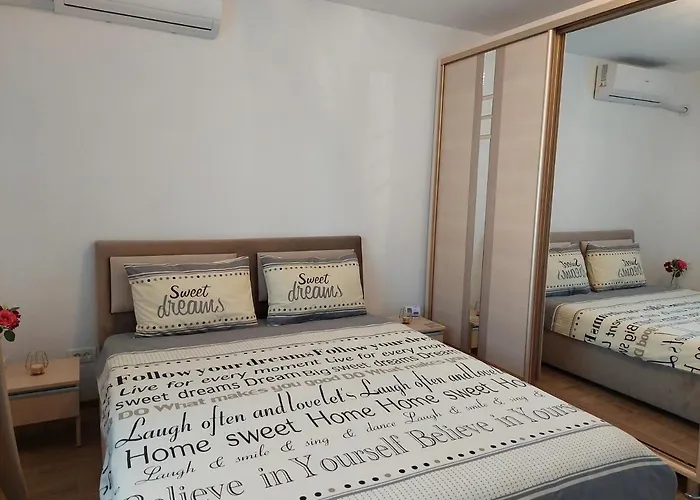 Sweet
dreams
Sweet
dreams
Follow your dreams Follow your dreams
Live for every moment Live for every
sweet dreams DreamBig sweet dreams
DO What makes you good DO What makes
Laugh often and lovelots Laugh often and love
Home sweet Home Home sweet Home
Laugh & smile & sing & dance Laugh & smile & sing &
Believe in Yourself Believe in Yours
Sweet
dreams